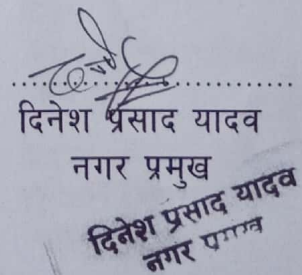 दिनेश प्रसाद यादव
नगर प्रमुख
दिनेश प्रसाद यादव
नगर